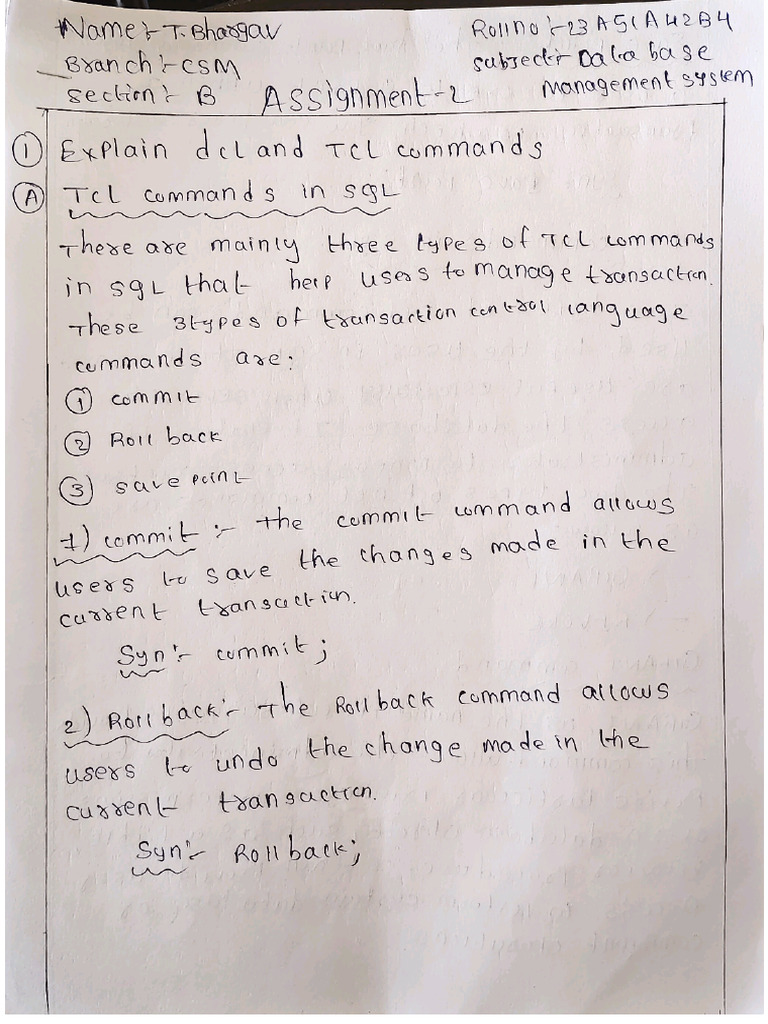 Name:- T. Bhargav
Roll no :- 23A51A42B4
Branch :- CSM
Subject:- Data base
Management system
Section:- B
Assignment-2
① Explain dcl and TCL commands
Ⓐ TCL commands in SQL
There are mainly three types of TCL commands
in SQL that help users to manage transaction.
These 3types of transaction control language
commands are:
① commit
② Roll back
③ save point
1) commit :- The commit command allows
users to save the changes made in the
current transaction.
Syn:- commit;
2) Roll back:- The Roll back command allows
users to undo the change made in the
current transaction.
Syn:- Roll back;